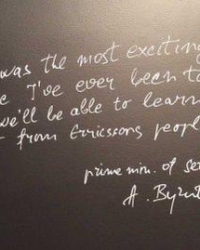 was the most exciting
I've ever been to
we'll be able to learn
from Ericssons people
prime min. of
A.